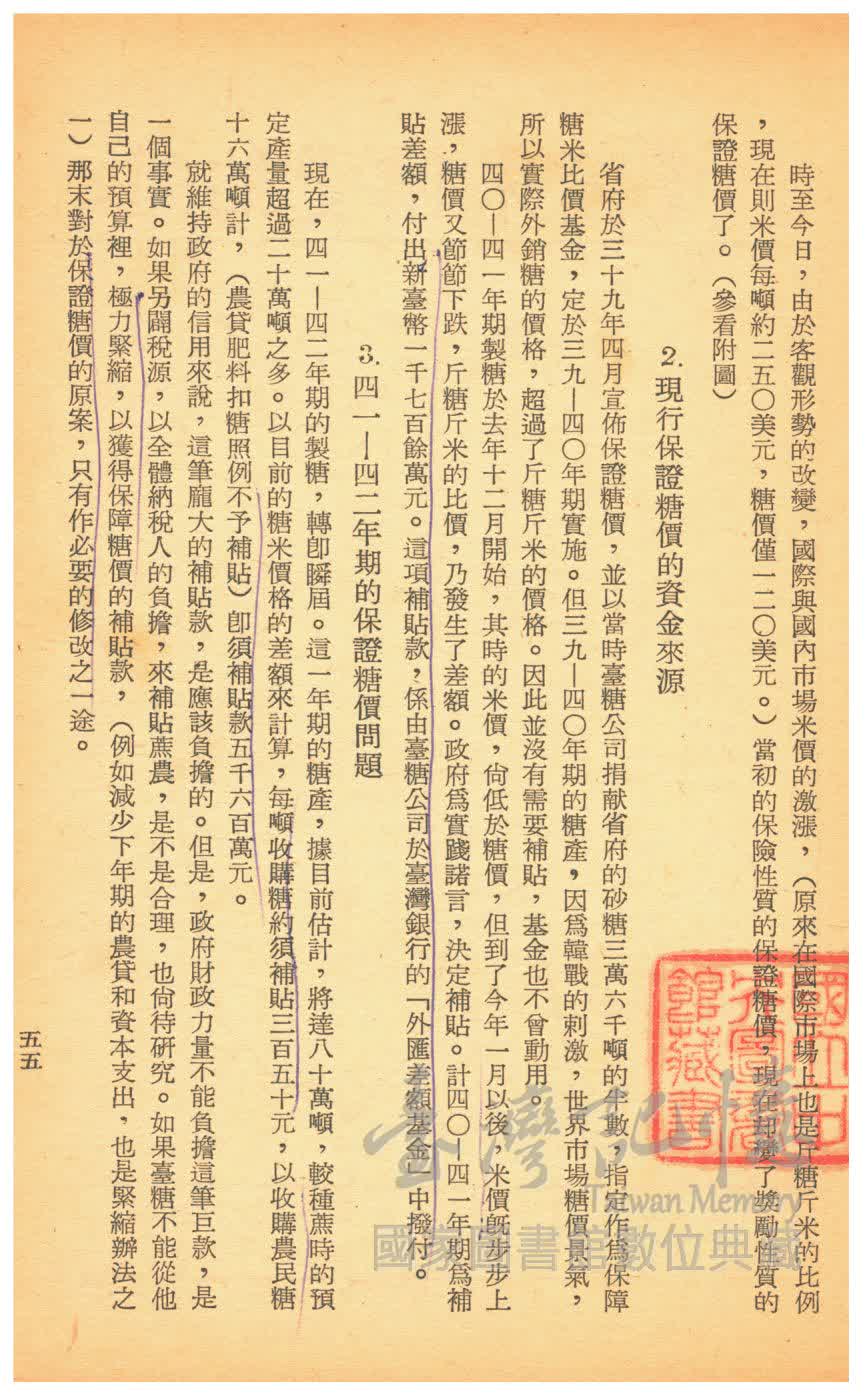 時至今日，由於客觀形勢的改變，國際與國內市場米價的激漲，（原來在國際市場上也是斤糖斤米的比例
，現在則米價每噸約二五〇美元，糖價僅一二〇美元。）當初的保險性質的保證糖價，現在却變了獎勵性質的
保證糖價了。（參看附圖）
2. 現行保證糖價的資金來源
省府於三十九年四月宣佈保證糖價，並以當時臺糖公司捐献省府的砂糖三萬六千噸的半數，指定作爲保障
糖米比價基金，定於三九—四〇年期實施。但三九—四〇年期的糖產，因爲韓戰的刺激，世界市場糖價景氣，
所以實際外銷糖的價格，超過了斤糖斤米的價格。因此並沒有需要補貼，基金也不曾動用。
四〇—四一年期製糖於去年十二月開始，其時的米價，尙低於糖價，但到了今年一月以後，米價旣步步上
漲，糖價又節節下跌，斤糖斤米的比價，乃發生了差額。政府爲實踐諾言，決定補貼。計四〇—四一年期爲補
貼差額，付出新臺幣一千七百餘萬元。這項補貼款，係由臺糖公司於臺灣銀行的「外匯差額基金」中撥付。
3. 四一—四二年期的保證糖價問題
現在，四一—四二年期的製糖，轉卽瞬屆。這一年期的糖產，據目前估計，將達八十萬噸，較種蔗時的預
定產量超過二十萬噸之多。以目前的糖米價格的差額來計算，每噸收購糖約須補貼三百五十元，以收購農民糖
十六萬噸計，（農貸肥料扣糖照例不予補貼）卽須補貼款五千六百萬元。
就維持政府的信用來說，這筆龐大的補貼款，是應該負擔的。但是，政府財政力量不能負擔這筆巨款，是
一個事實。如果另闢稅源，以全體納稅人的負擔，來補貼蔗農，是不是合理，也尙待研究。如果臺糖不能從他
自己的預算裡，極力緊縮，以獲得保障糖價的補貼款，（例如減少下年期的農貸和資本支出，也是緊縮辦法之
一）那末對於保證糖價的原案，只有作必要的修改之一途。
五五
國立中央圖書館藏書
臺灣記憶
Taiwan Memory
國家圖書館數位典藏